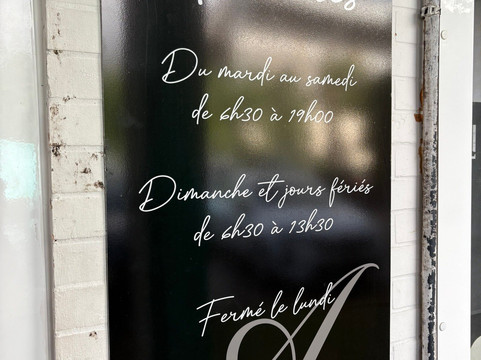 Du mardi au samedi
de 6h30 à 19h00
Dimanche et jours fériés
de 6h30 à 13h30
Fermé le lundi
A